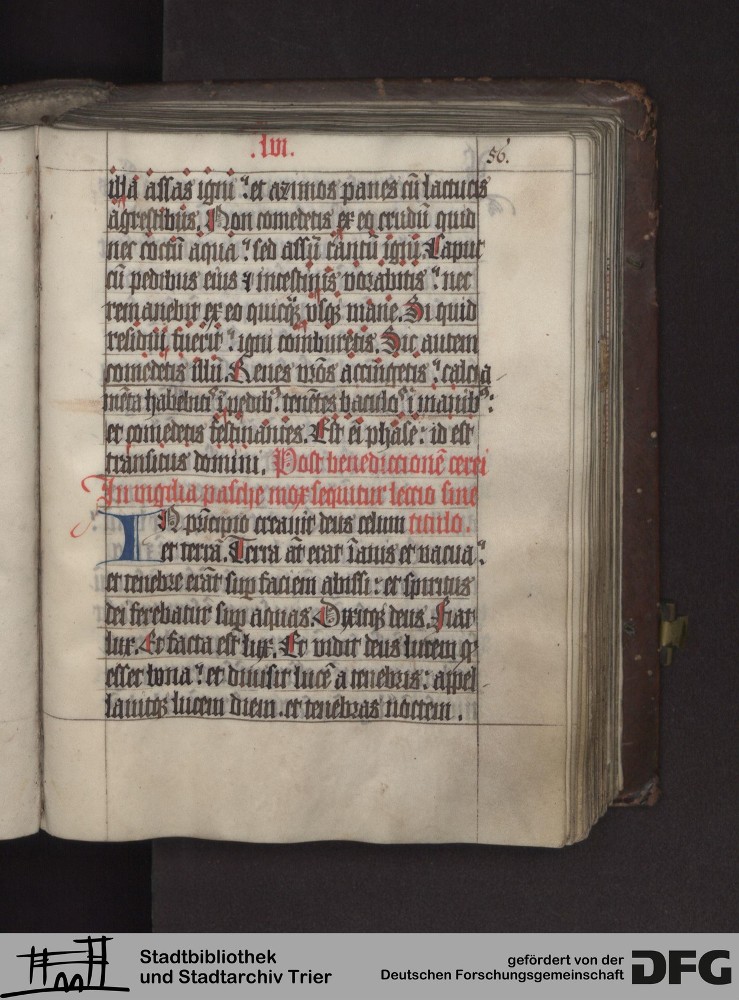 .lvi.
56.
illa assas igni : et azimos panes cū lactucis
agrestibus. Non comedetis ex eo crudū quid
nec coctū aqua : sed assū tantū igni. Caput
cū pedibus eius & intestinis vorabitis : nec
remanebit ex eo quicqȝ vsqȝ mane. Si quid
residuū fuerit : igni comburetis. Sic autem
comedetis illū. Renes vr̄os accingetis : calcia
mēta habebitꝭ ī pedibꝰ. tenētes baculoꝭ ī manibꝰ :
et comedetis festinantes. Est ei phase : id est
transitus domini. Post benedictionē cerei
In vigilia pasche mox sequitur lectio sine
IN pͥncipio creauit deus celum titulo.
et terrā. Terra aūt erat īanis et vacua :
et tenebre erāt sup faciem abissi : et spiritus
dei ferebatur sup aquas. Dixitqȝ deus. Fiat
lux. Et facta est lux. Et vidit deus lucem qͩ
esset bona : et diuisit lucē a tenebris : appel
lauitqȝ lucem diem . et tenebras noctem .
Stadtbibliothek
und Stadtarchiv Trier
gefördert von der
Deutschen Forschungsgemeinschaft
DFG